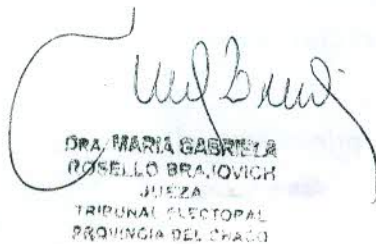 DRA. MARIA GABRIELA
ROSELLO BRAJOVICH
JUEZA
TRIBUNAL ELECTORAL
PROVINCIA DEL CHACO